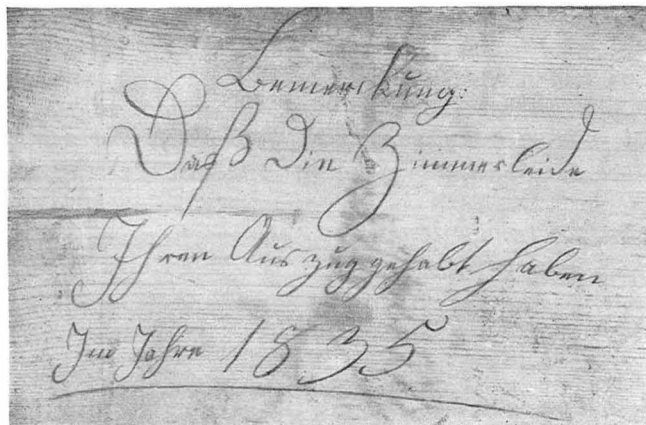 Bemerckung:
Daß Die Zimmerleide
Ihren Auszug gehabt haben
Im Jahre 1835